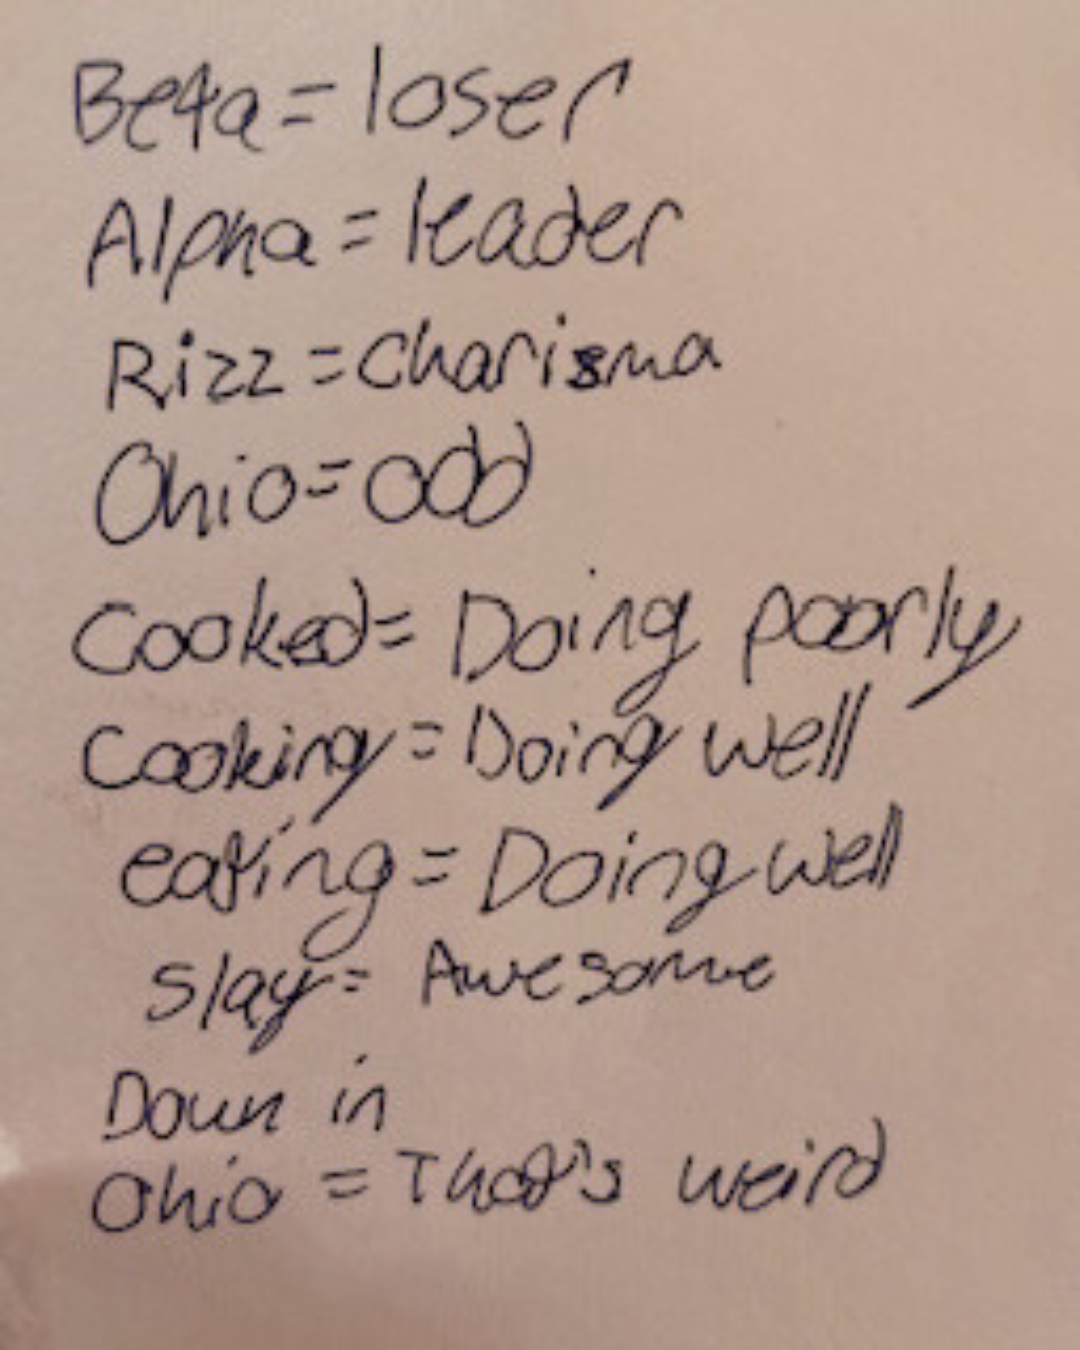 Beta = loser
Alpha = leader
Rizz = Charisma
Ohio = odd
Cooked = Doing poorly
Cooking = Doing well
eating = Doing well
Slay = Awesome
Down in
Ohio = That's weird